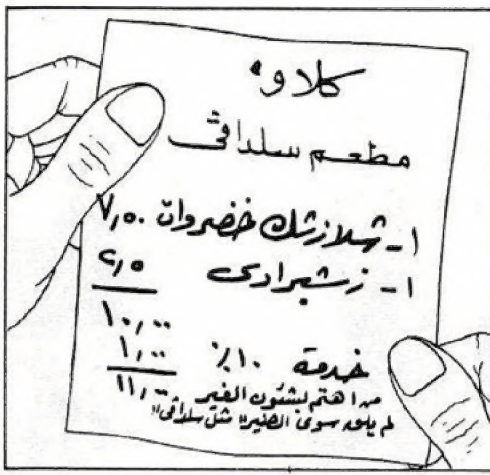 كلاوه
مطعم سلدافى
١- شلازشك خضروات ٧,٥٠
١- زشبرادى ٢,٥
١٠,٠٠
خدمة ١٠٪ ١,٠٠
١١,٠٠
من اهتم بشئون الغير
لم يلق سوى الضير" مثل سلدافى"